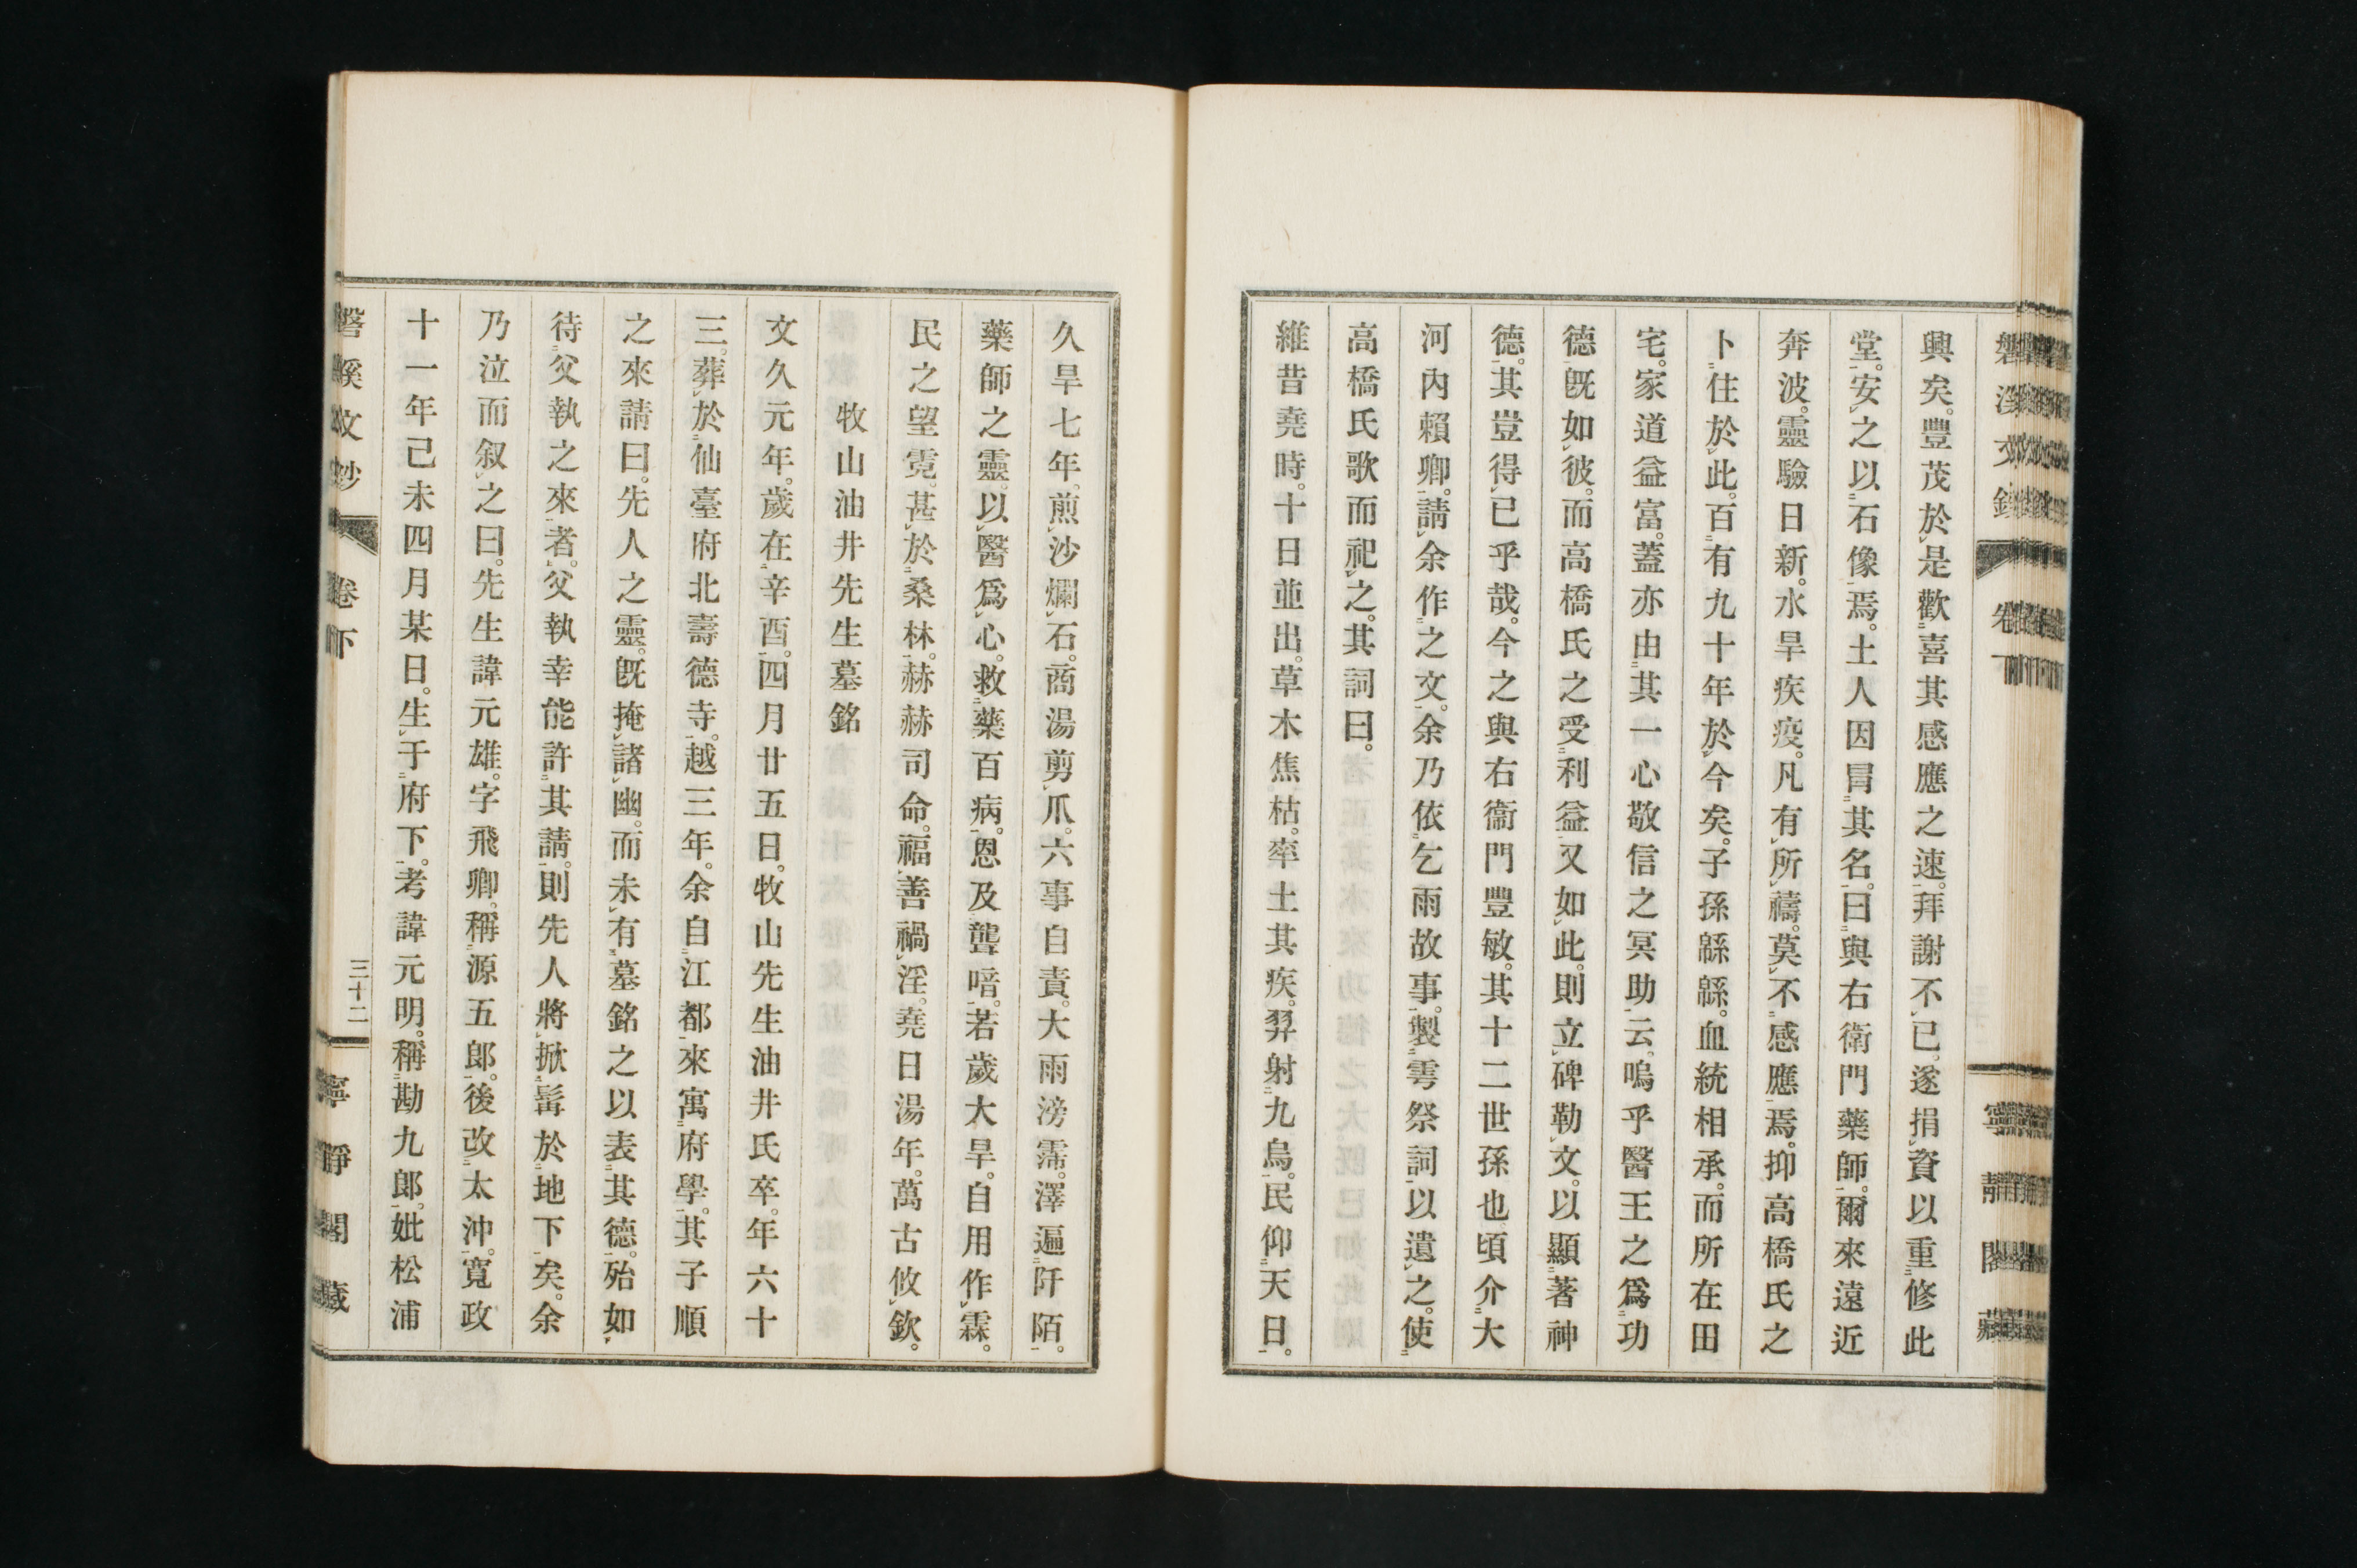 興矣。豐茂於是歡喜其感應之速。拜謝不已。遂捐資以重修此
堂。安之以石像焉。土人因冐其名。曰與右衛門藥師。爾來遠近
奔波。靈驗日新。水旱疾疫。凡有所禱。莫不感應焉。抑高橋氏之
卜住於此。百有九十年於今矣。子孫緜緜。血統相承。而所在田
宅。家道益富。蓋亦由其一心敬信之冥助云。嗚乎醫王之爲功
德既如彼。而高橋氏之受利益又如此。則立碑勒文。以顯著神
德。其豈得已乎哉。今之與右衞門豐敏。其十二世孫也。頃介大
河內賴卿。請余作之文。余乃依乞雨故事。製雩祭詞以遺之。使
高橋氏歌而祀之。其詞曰。
維昔堯時。十日並出。草木焦枯。率土其疾。羿射九烏。民仰天日。
久旱七年。煎沙爛石。商湯剪爪。六事自責。大雨滂霈。澤遍阡陌。
藥師之靈。以醫爲心。救藥百病。恩及聾喑。若歲大旱。自用作霖。
民之望霓。甚於桑林。赫赫司命。福善禍淫。堯日湯年。萬古攸欽。
牧山油井先生墓銘
文久元年。歲在辛酉。四月廿五日。牧山先生油井氏卒。年六十
三。葬於仙臺府北壽德寺。越三年。余自江都來寓府學。其子順
之來請曰。先人之靈。既掩諸幽。而未有墓銘之以表其德。殆如
待父執之來者。父執幸能許其請。則先人將掀髯於地下矣。余
乃泣而叙之曰。先生諱元雄。字飛卿。稱源五郎。後改太沖。寬政
十一年己未四月某日。生于府下。考諱元明。稱勘九郎。妣松浦
磐溪文鈔 卷下 三十二 寧靜閣藏